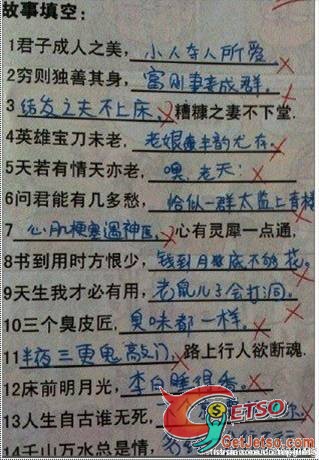 故事填空：
1君子成人之美，小人夺人所爱。
2穷则独善其身，富则妻妾成群。
3结发之夫不上床，糟糠之妻不下堂.
4英雄宝刀未老，老娘风韵尤存。
5天若有情天亦老，噢，老天！
6问君能有几多愁，恰似一群太监上青楼
7心肌梗塞遇神医，心有灵犀一点通，
8书到用时方恨少，钱到月底不够花。
9天生我才必有用，老鼠儿子会打洞。
10三个臭皮匠，臭味都一样。
11半夜三更鬼敲门，路上行人欲断魂.
12床前明月光，李白睡得香。
13人生自古谁无死，
14千山万水总是情，
GETSO
GetJetso.com